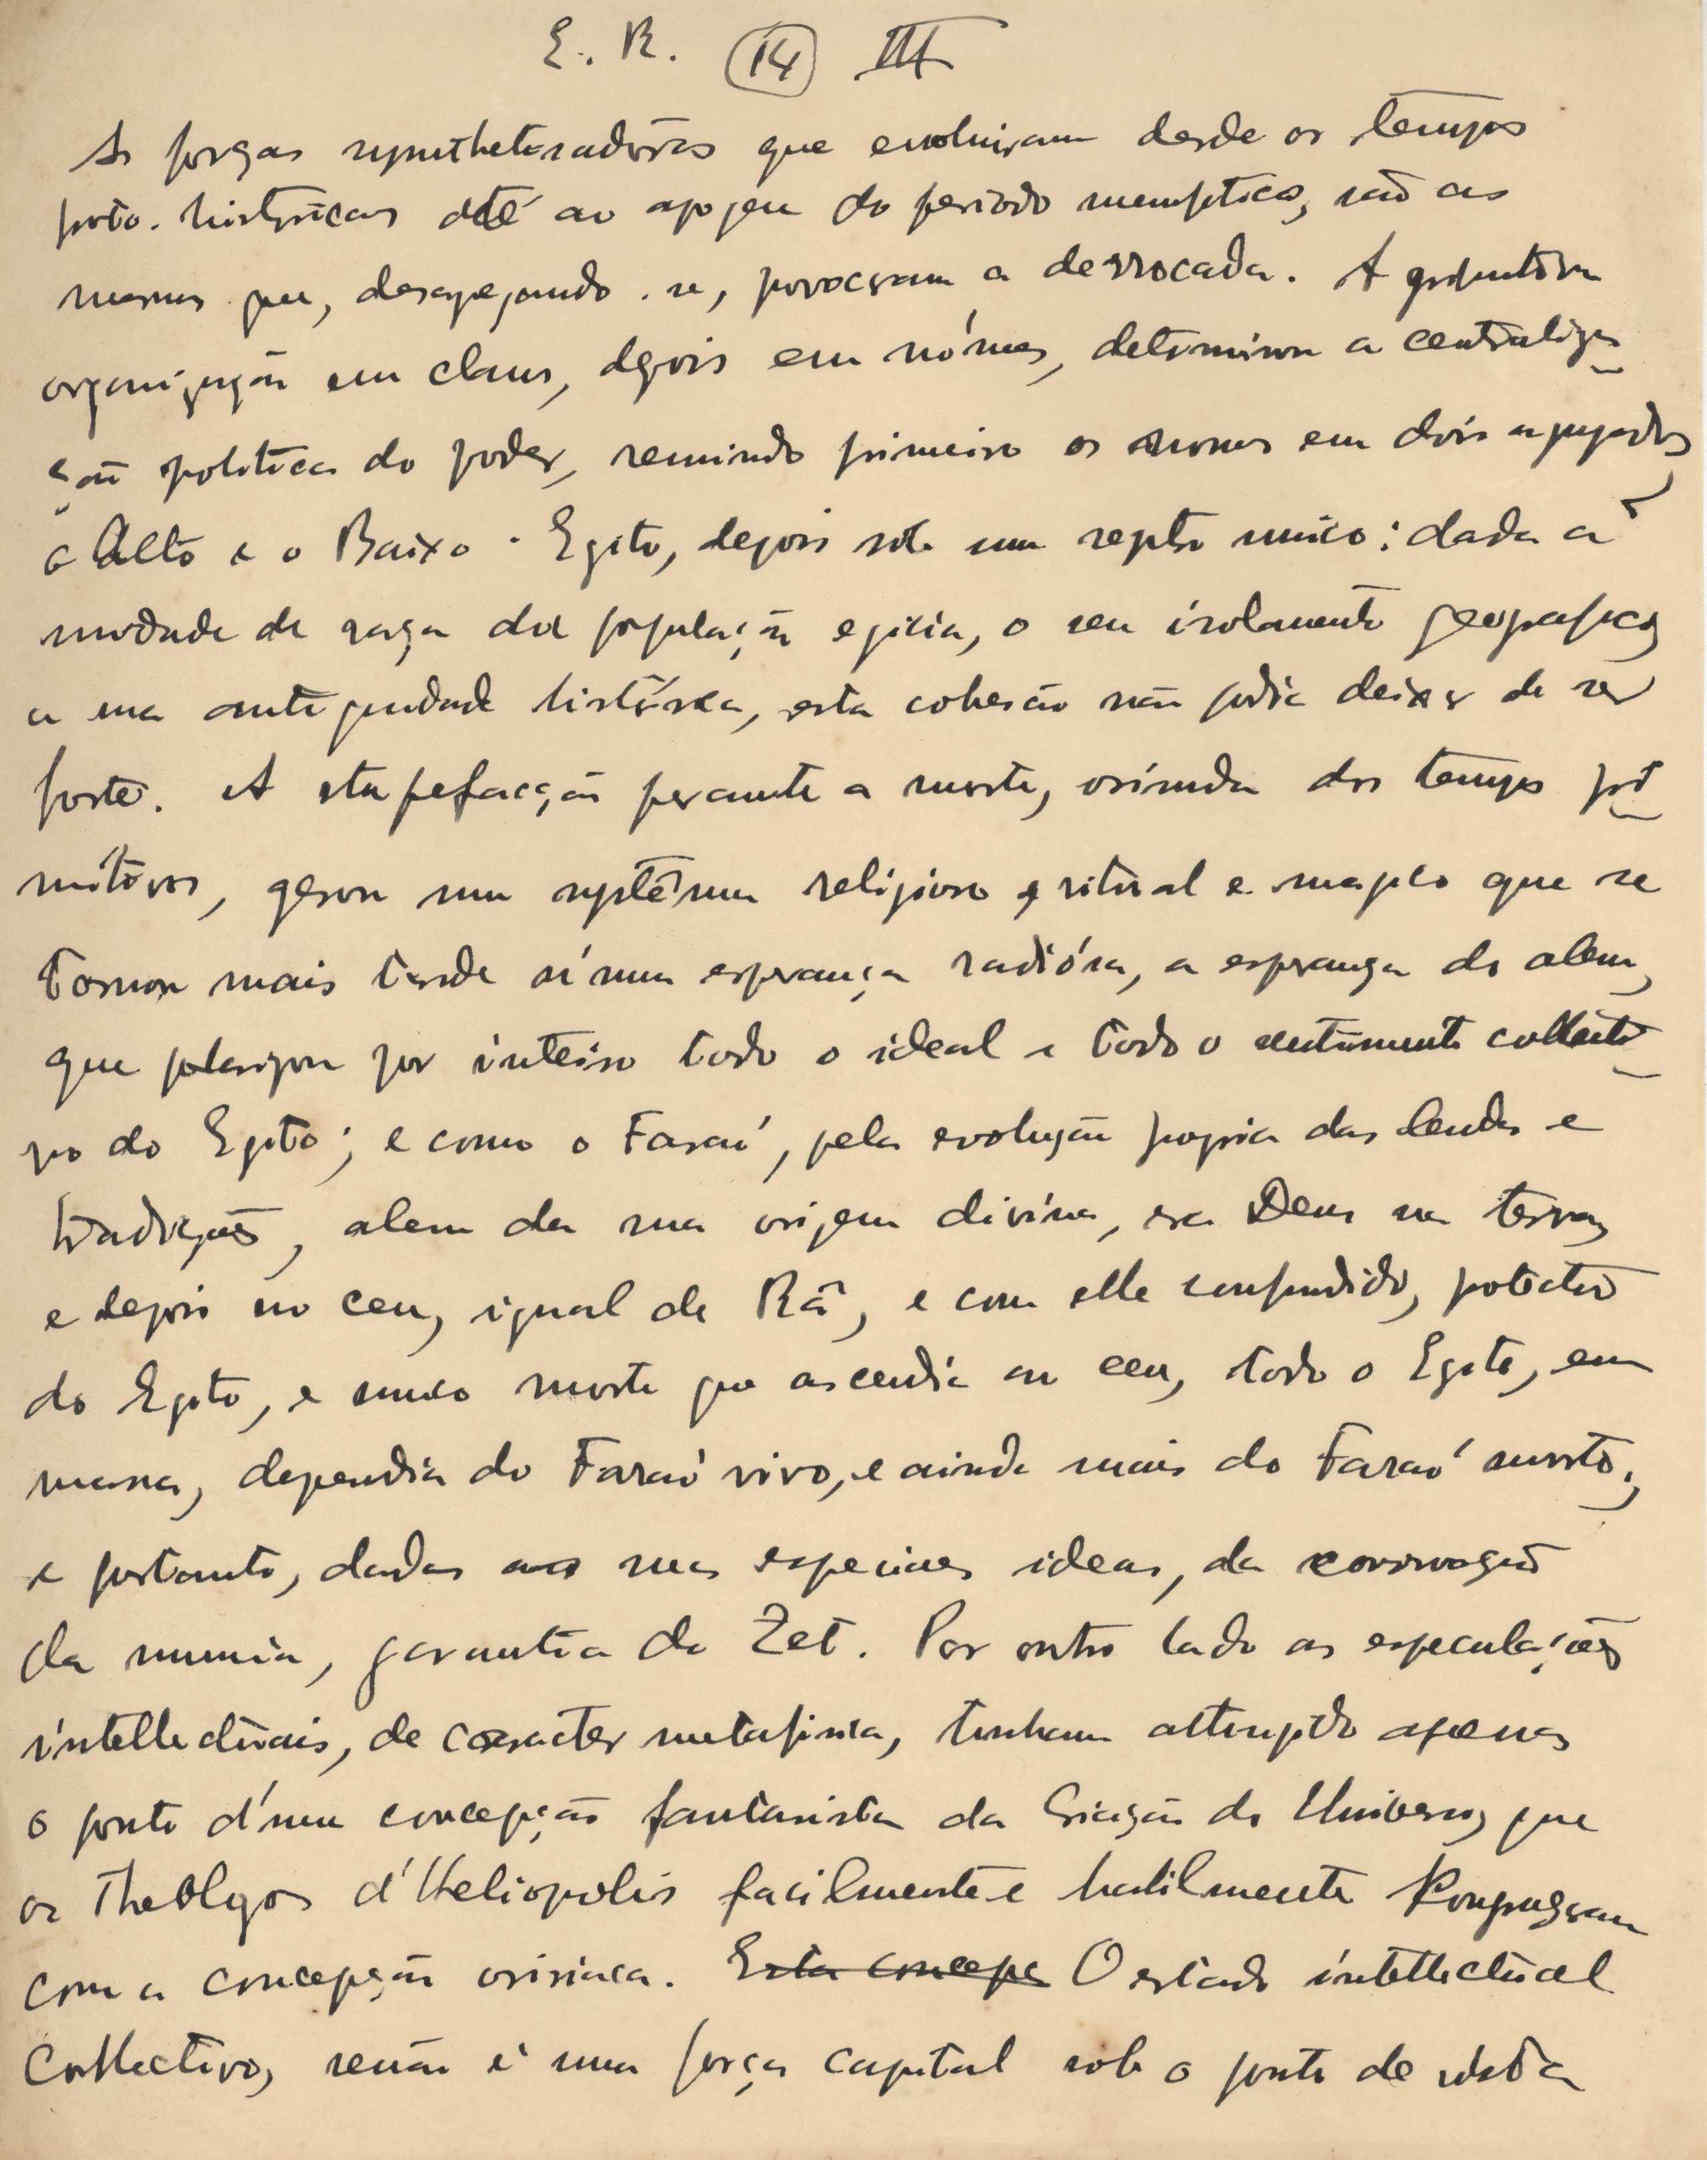 E. R. (14) III
As forças synthetisadôras que evoluiram desde os tempos
proto-historicos até ao apogeu do periodo memphitico, são as
mesmas que, desagregando-se, provocaram a derrocada. A
organização em clans, depois em nómes, determinou a centraliza-
ção politica do poder, reunindo primeiro os nomes em dois agregados,
o Alto e o Baixo-Egito, depois sob um sceptro unico: dada a
unidade de raça da população egicia, o seu isolamento geografico,
a sua antiguidade histórica, esta cohesão não podia deixar de ser
forte. A stupefacção perante a morte, oriunda dos tempos pri-
mitivos, gerou um systêma religioso e ritual e magico que se
tornou mais tarde n'uma esperança radiósa, a esperança do alem,
que polarizou por inteiro todo o ideal e todo o sentimento collecti-
vo do Egito; e como o Faraó, pela evolução propria das lendas e
tradições, alem da sua origem divina, era Deus na terra,
e depois no ceu, igual de Râ, e com elle confundido, protector
do Egito, e unico morto que ascendia ao ceu, todo o Egito, em
massa, dependia do Faraó vivo, e ainda mais do Faraó morto;
e portanto, dadas as suas especiaes ideas, da conservação
da mumia, garantia do Zet. Por outro lado as especulações
intellectuais, de caracter metafisico, tinham attingido apenas
o ponto d'uma concepção fantasista da Criação do Universo, que
os Theologos d'Heliopolis facilmente e habilmente
com a concepção osiriaca. Esta concepç O estado intellectual
collectivo, senão é uma força capital sob o ponto de vista